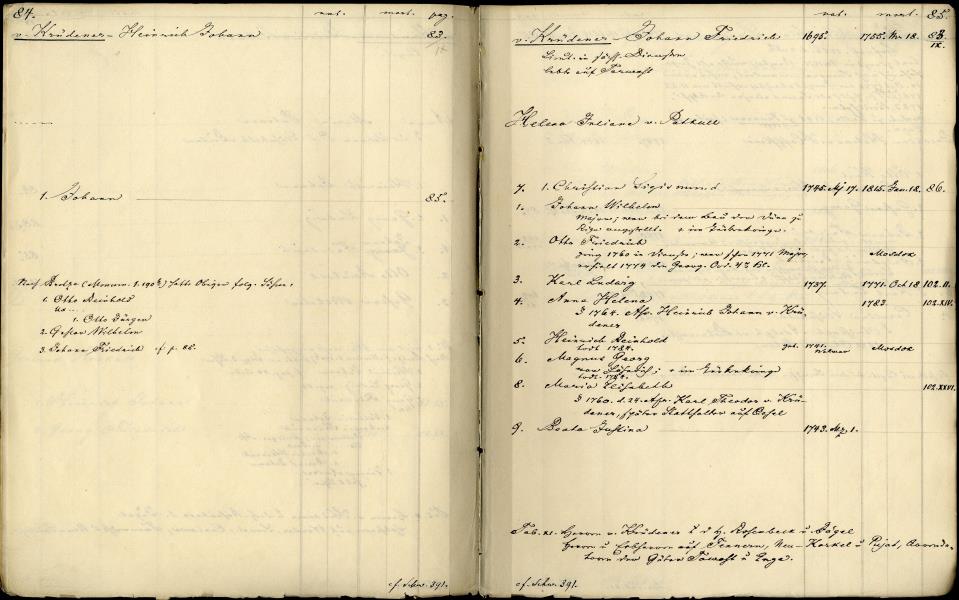 84.
nat. mort. pag.
v. Krüdener - Heinrich Johann 83.
IX
1. Johann 85.
Nach (Monum. folg. Söhne:
1. Otto Reinhold
1. Otto Jürgen
2. Gustav Wilhelm
3. Johann Friedrich cf. p. 82.
cf. Schw. 391.
nat. mort. 85.
v. Krüdener - Johann Friedrich 1695. 1755. Nr. 18. 83.
IX.
Lieut. in Diensten
lebte auf
Helena Juliana v. Patkull
7. 1. Christian Sigismund 1745. Mj 17. 1815. Jan. 18. 86.
1. Johann Wilhelm
Major; war bei dem Bau der Düna zu
Riga angestellt. + im Türkenkriege.
2. Otto Friedrich
ging 1760 in Dienste; war schon 1771 Major Mosdok
erhielt 1774 den Georg. Ord. 4. Kl.
3. Karl Ludwig 1737. 1771. Oct 18 102.II.
4. Anna Helena 1783. 102.XIV.
1764. Ass. Heinrich Johann v. Krü-
dener
5. Heinrich Reinhold get. 1741. Mosdok
todt 1784.
6. Magnus Georg
war + im Türkenkriege
todt. 1784.
8. Maria Elisabeth 102.XXVI.
1760. d. 24. Apr. Karl Theodor v. Krü-
dener, später Statthalter auf Oesel
9. Beata Justina 1743. Mz. 1.
Tab. XI. Herren v. Krüdener a. d. H. Rosenbeck u.
Herren u. Erbherren auf Neu-Karkel u. Pujat, Arrenda-
toren der Güter u.
cf. Schw. 391.